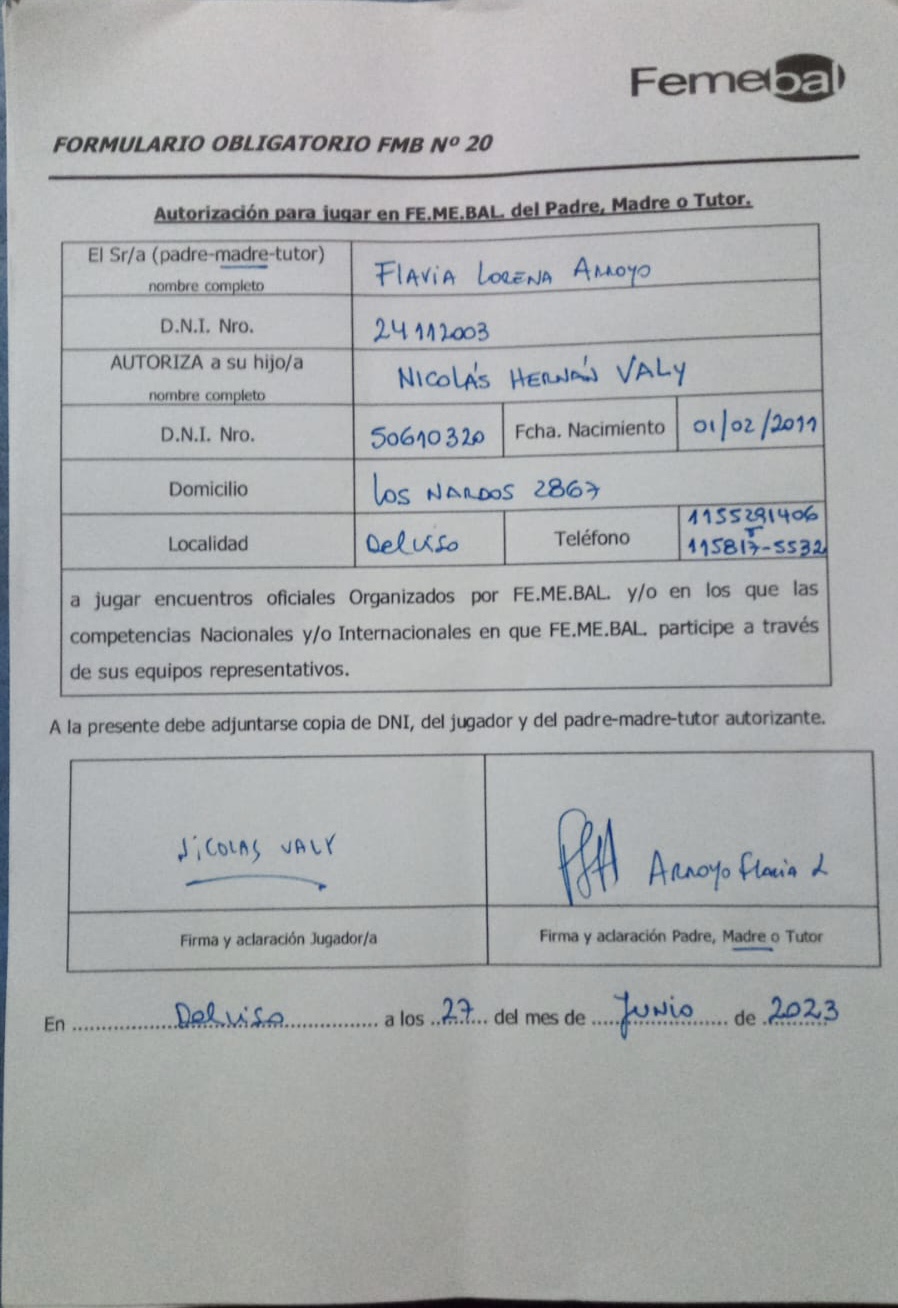 Femebal
FORMULARIO OBLIGATORIO FMB Nº 20
Autorización para jugar en FE.ME.BAL. del Padre, Madre o Tutor.
El Sr/a (padre-madre-tutor)
nombre completo
FLAVIA LORENA ARROYO
D.N.I. Nro.
24112003
AUTORIZA a su hijo/a
nombre completo
NICOLÁS HERNÁN VALY
D.N.I. Nro.
50610320
Fcha. Nacimiento
01/02/2011
Domicilio
LOS NARDOS 2867
Localidad
Del Viso
Teléfono
1155291406
115817-5532
a jugar encuentros oficiales Organizados por FE.ME.BAL. y/o en los que las
competencias Nacionales y/o Internacionales en que FE.ME.BAL. participe a través
de sus equipos representativos.
A la presente debe adjuntarse copia de DNI, del jugador y del padre-madre-tutor autorizante.
NICOLAS VALY
Arroyo Flavia L
Firma y aclaración Jugador/a
Firma y aclaración Padre, Madre o Tutor
En Del Viso a los 27 del mes de Junio de 2023